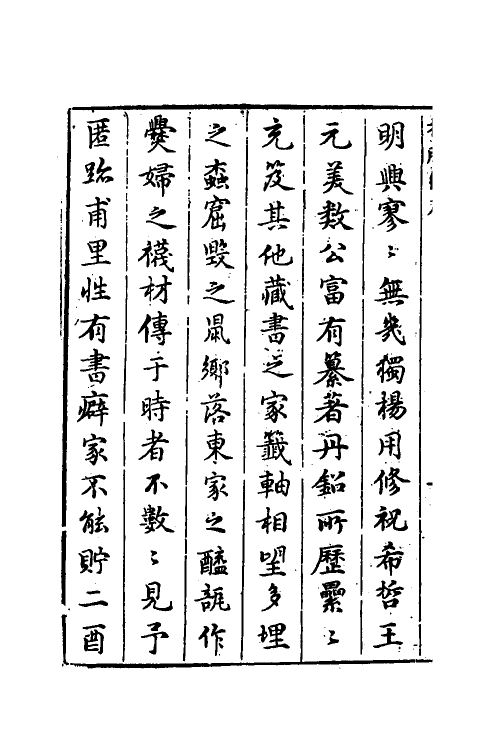 明興寥〻無幾獨楊用修祝希哲王
元美数公富有纂著丹鉛所歷纍〻
充笈其他藏書之家籤軸相望多埋
之蟫窟毀之鼠鄉落東家之醯瓿作
爨婦之襪材傳于時者不數〻見予
匿跡甫里性有書癖家不能貯二酉